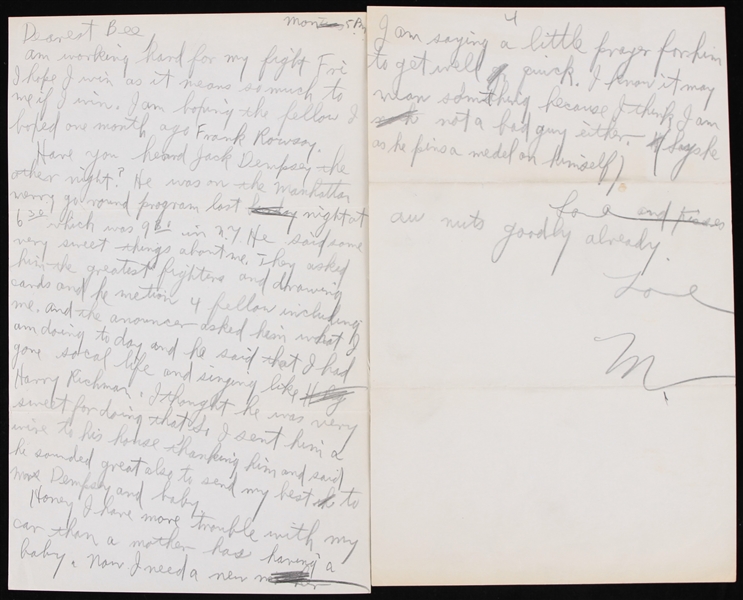 Mon 5 P.M
Dearest Bee,
am working hard for my fight Fri
I hope I win as it means so much to
me if I win. I am boxing the fellow I
boxed one month ago Frank Rowsay.
Have you heard Jack Dempsey the
other night? He was on the Manhattan
merry go round program last night at
6 30 which was 9 30 in N.Y. He said some
very sweet things about me. They asked
him the greatest fighters and drawing
cards and he metion 4 fellow including
me. and the anouncer asked him what I
am doing to day and he said that I had
gone socal life and singing like
Harry Richman. I thought he was very
sweet for doing that so I sent him a
wire to his house thanking him and said
he sounded great also to send my best to
Mrs Dempsey and baby.
Honey I have more trouble with my
car than a mother has having a
baby. Now I need a new
4
I am saying a little prayer for him
to get well quick. I know it may
mean something because I think I am
not a bad guy either. (Says he
as he pins a medel on himself)
Love and Kisses
aw nuts goodby already.
Love
M.